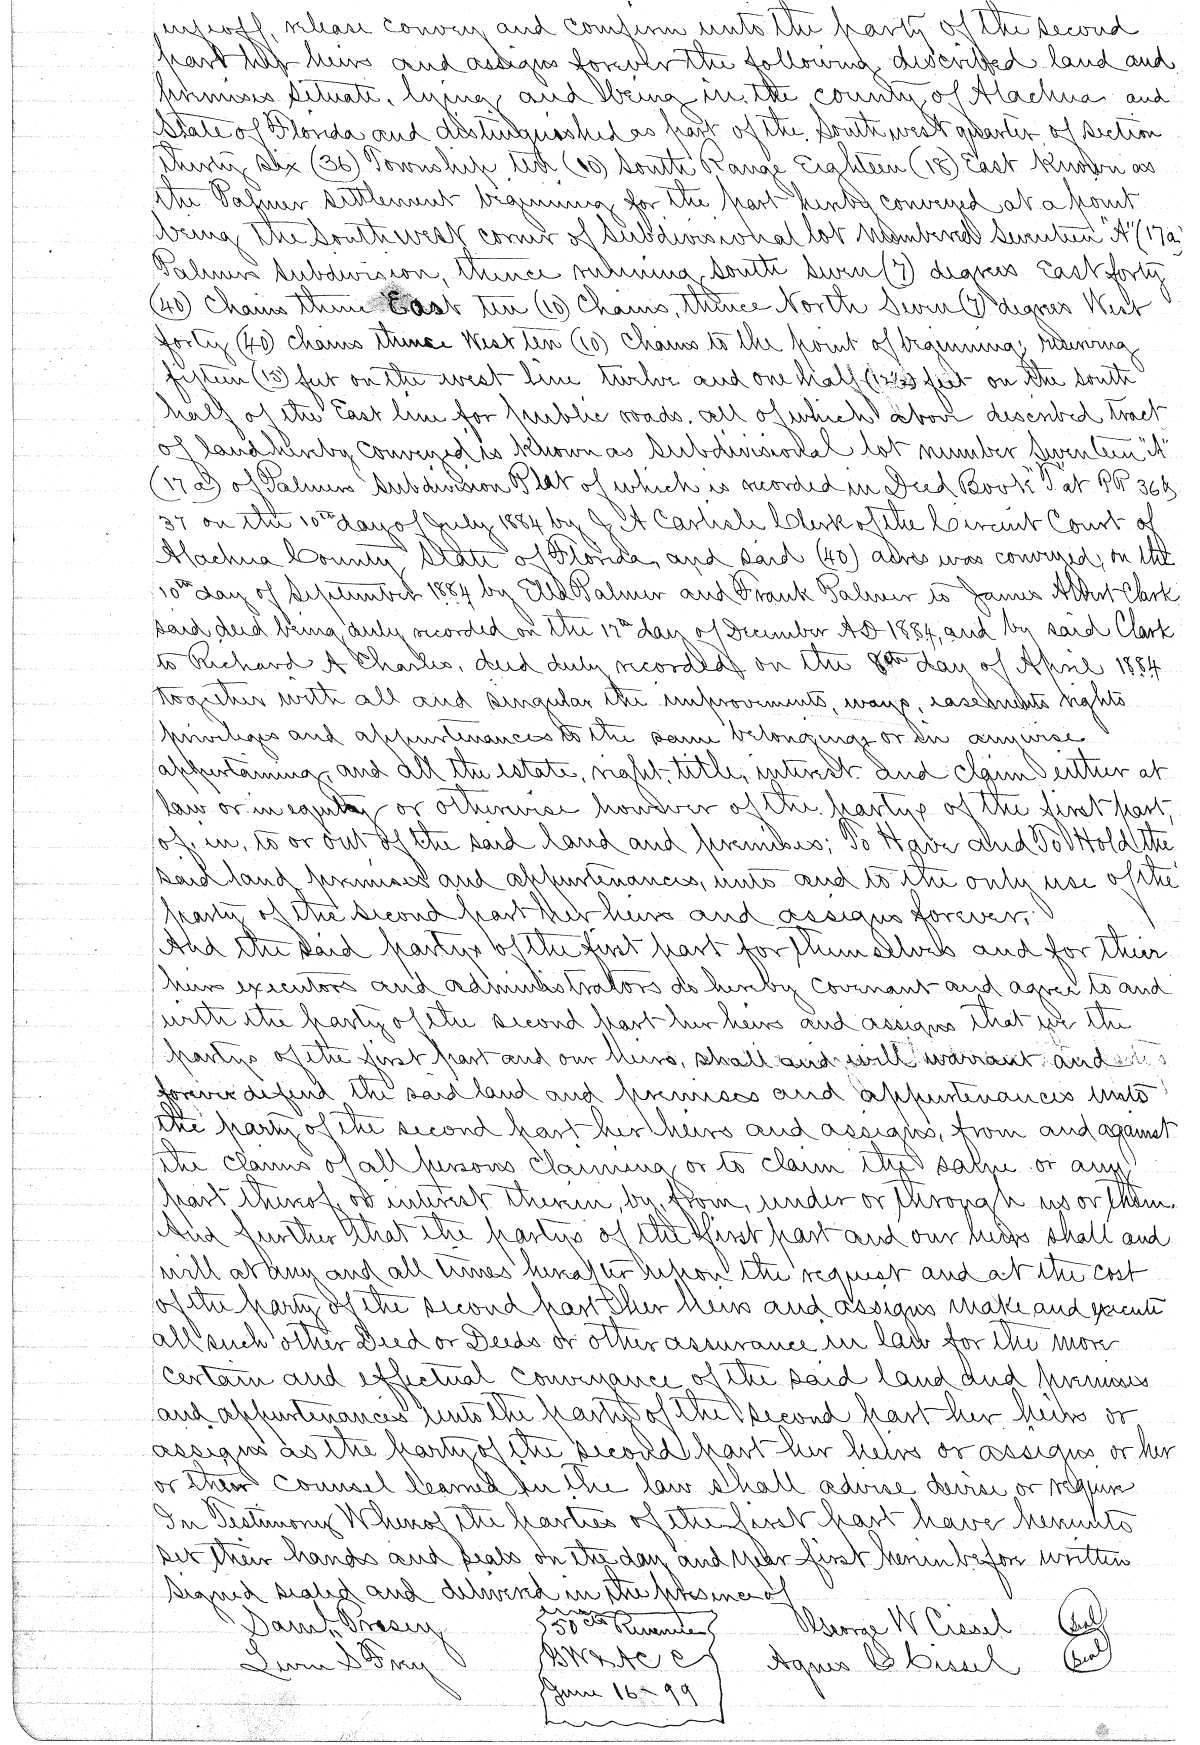 enfeoff, release convey and confirm unto the party of the second
part her heirs and assigns forever the following described land and
premises situate, lying and being in the county of Alachua and
State of Florida and distinguished as part of the Southwest quarter of section
thirty six (36) Township ten (10) South Range Eighteen (18) East known as
the Palmer settlement beginning for the part hereby conveyed at a point
being the Southwest corner of Subdivisional lot numbered Seventeen "A" (17a)
Palmers Subdivision, thence running South Seven (7) degrees East forty
(40) Chains thence East ten (10) Chains, thence North Seven (7) degrees West
forty (40) chains thence West ten (10) Chains to the point of beginning; reserving
fifteen (15) feet on the west line twelve and one half (12½) feet on the south
half of the East line for public roads. all of which above described tract
of land hereby conveyed is known as Subdivisional lot number Seventeen "A"
(17a) of Palmers Subdivision Plat of which is recorded in Deed Book "T" at PP 36 &
37 on the 10th day of July 1884 by J A Carlisle Clerk of the Circuit Court of
Alachua County State of Florida, and said (40) acres was conveyed; on the
10th day of September 1884 by Ella Palmer and Frank Palmer to James Albert Clark
said deed being duly recorded on the 17th day of December AD 1884, and by said Clark
to Richard A Charles, deed duly recorded on the 8th day of April 1884
together with all and singular the improvements, ways, easements rights
privileges and appurtenances to the same belonging or in anywise
appertaining, and all the estate, right, title, interest and claim either at
law or in equity or otherwise however of the partys of the first part,
of, in, to or out of the said land and premises; To Have and To Hold the
said land premises and appurtenances, unto and to the only use of the
party of the second part her heirs and assigns forever;
And the said partys of the first part for themselves and for their
heirs executors and administrators do hereby covenant and agree to and
with the party of the second part her heirs and assigns that we the
partys of the first part and our heirs, shall and will warrant and
forever defend the said land and premises and appurtenances unto
the party of the second part her heirs and assigns, from and against
the claims of all persons claiming or to claim the same or any
part thereof or interest therein, by, from, under or through us or them.
And further that the partys of the first part and our heirs shall and
will at any and all times hereafter upon the request and at the cost
of the party of the second part her heirs and assigns make and execute
all such other Deed or Deeds or other assurance in law for the more
certain and effectual conveyance of the said land and premises
and appurtenances unto the party of the second part her heirs or
assigns as the party of the second part her heirs or assigns or her
or their counsel learned in the law shall advise devise or require
In Testimony Whereof the parties of the first part have hereunto
set their hands and seals on the day and year first herein before written
Signed sealed and delivered in the presence of
Saml 50 cts Revenue George W Cissel (seal)
C C Agnes Cissel (seal)
June 16-99